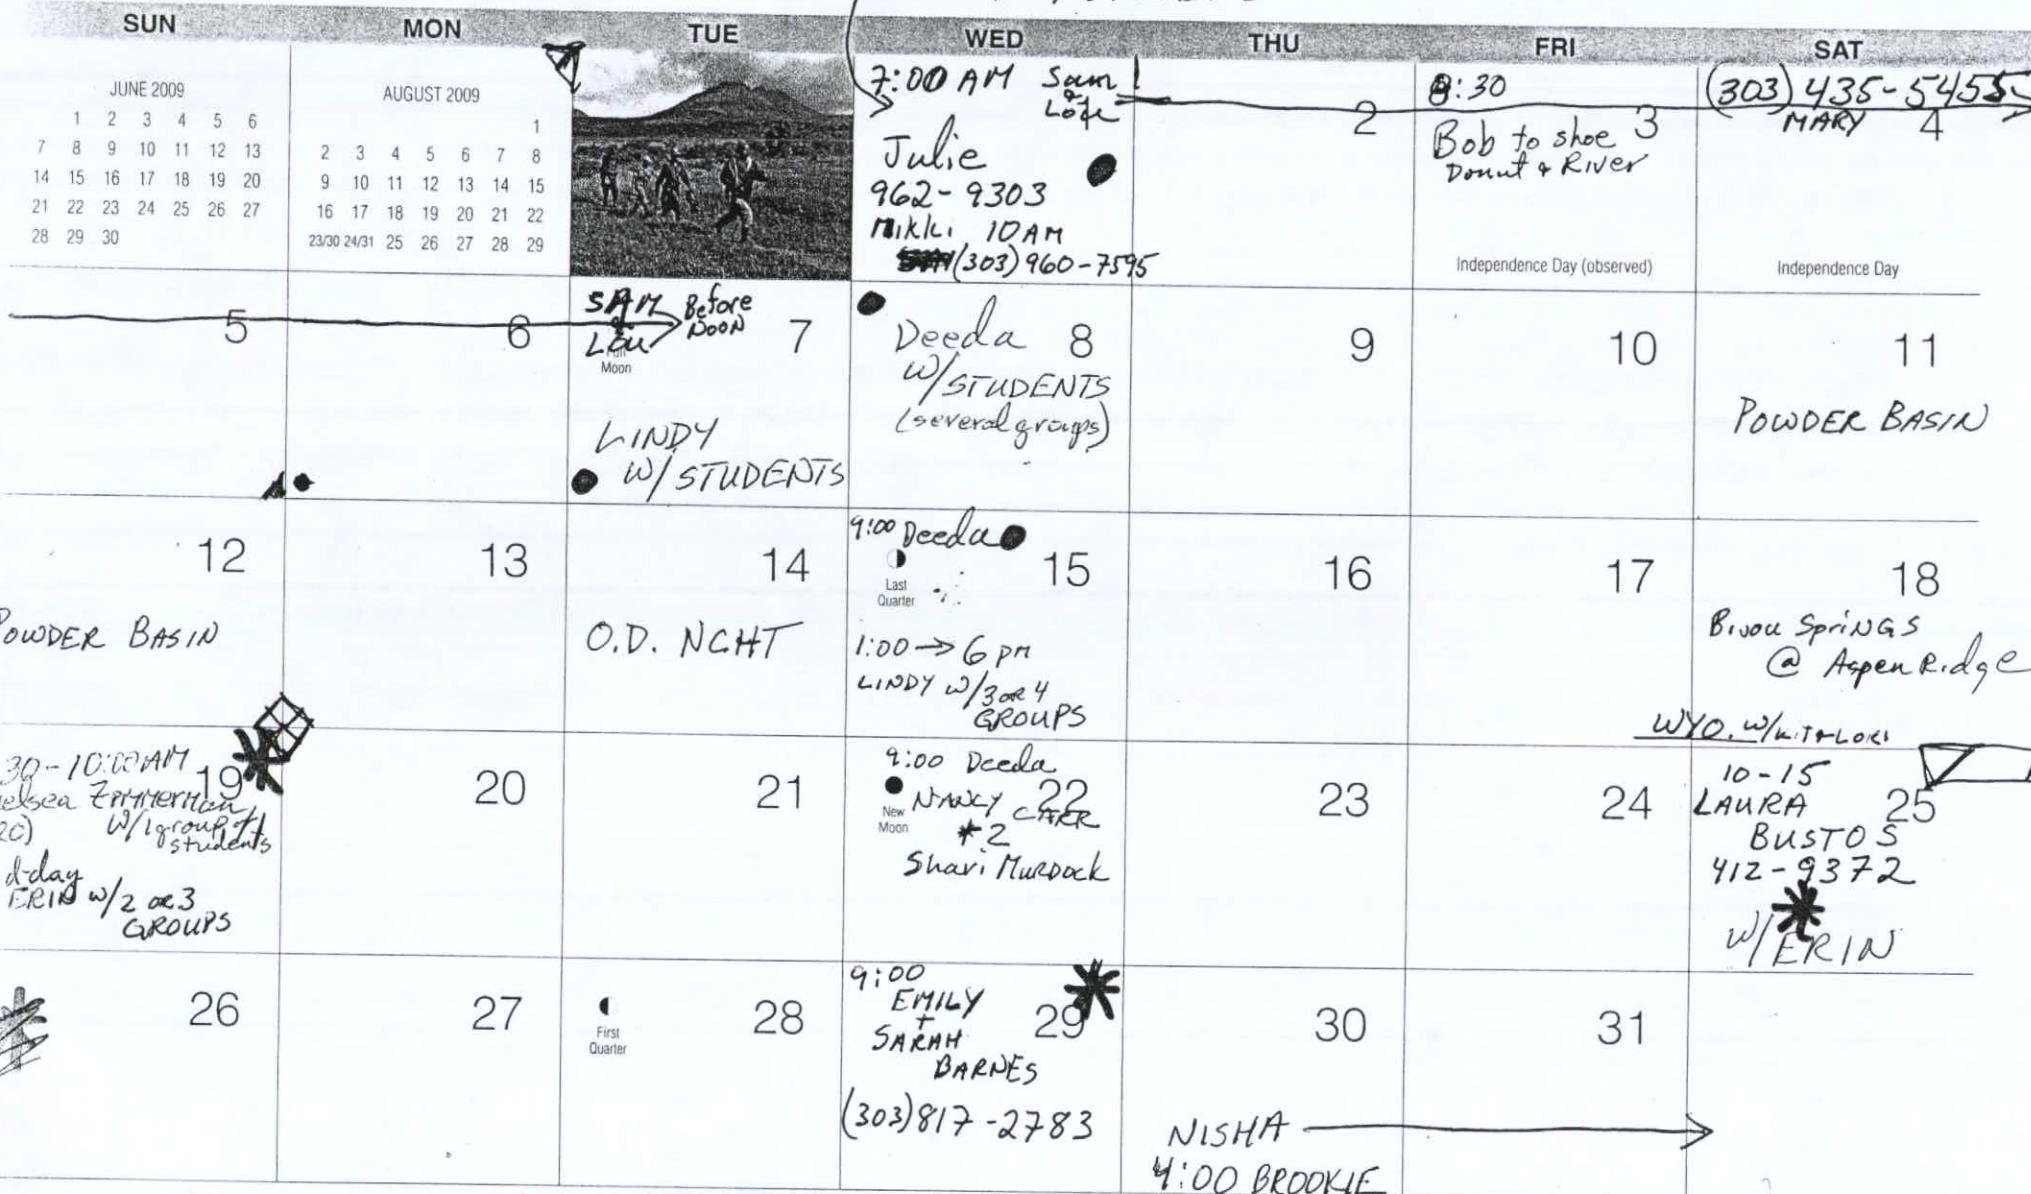 SUN MON TUE WED THU FRI SAT
JUNE 2009
1 2 3 4 5 6
7 8 9 10 11 12 13
14 15 16 17 18 19 20
21 22 23 24 25 26 27
28 29 30
AUGUST 2009
1
2 3 4 5 6 7 8
9 10 11 12 13 14 15
16 17 18 19 20 21 22
23/30 24/31 25 26 27 28 29
7:00 AM Sam
&
Lou
Julie
962-9303
Mikki 10AM
(303) 960-7595
2
8:30
3
Bob to shoe
Donut & River
Independence Day (observed)
(303) 435-5455
MARY 4
Independence Day
5
6
SAM Before
& NOON
Lou 7
Full
Moon
LINDY
W/STUDENTS
Deeda 8
W/STUDENTS
(several groups)
9
10
11
POWDER BASIN
12
POWDER BASIN
13
14
O.D. NCHT
9:00 Deeda
15
Last
Quarter
1:00 → 6 PM
LINDY W/3 OR 4
GROUPS
16
17
18
Bijou SPRINGS
@ Aspen Ridge
WYO. W/KIT & LORI
30-10:00 AM
19
elsea Zimmerman
W/1 group of
students
d-day
ERIN W/2 OR 3
GROUPS
20
21
9:00 Deeda
22
New
Moon
NANCY CARR
*2
Shari MURDOCK
23
24
10-15
LAURA 25
BUSTOS
412-9372
W/ERIN
26
27
28
First
Quarter
9:00
EMILY
+ 29
SARAH
BARNES
(303) 817-2783
30
NISHA
4:00 BROOKIE
31